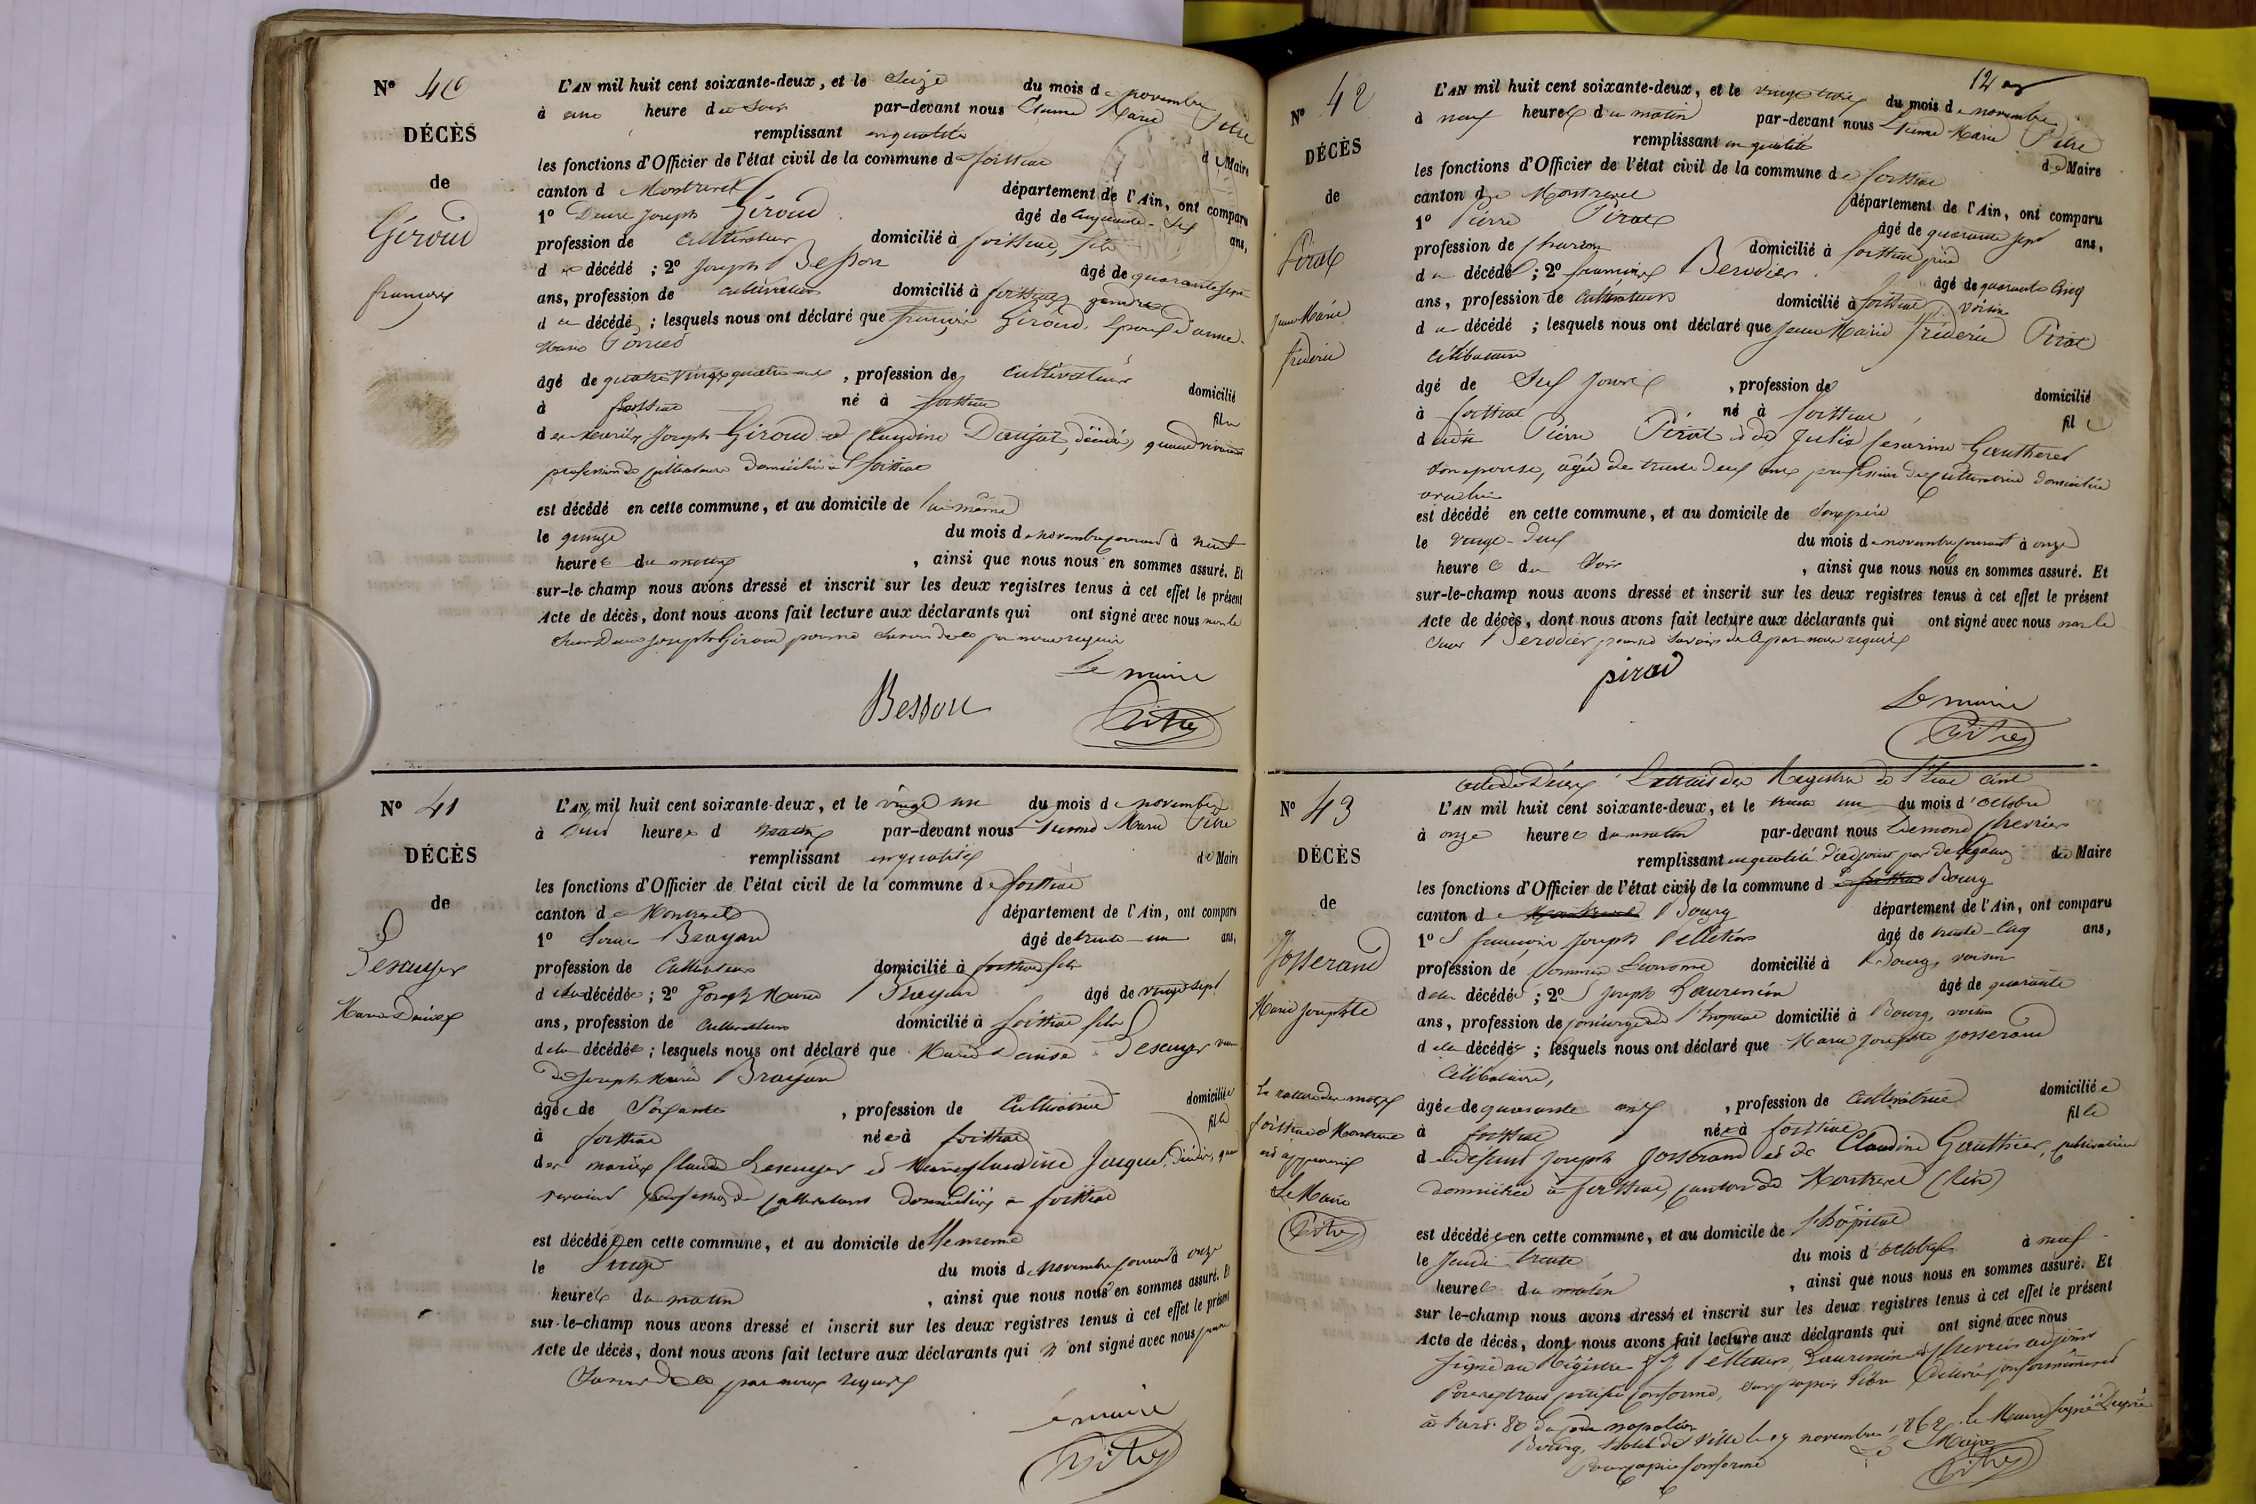 Nº 40
DÉCÈS
de
Giroud
françois
L'AN mil huit cent soixante-deux, et le Seize du mois de novembre
à une heure du Soir par-devant nous Etienne Marie Pitre
remplissant en qualité de Maire
les fonctions d'Officier de l'état civil de la commune de foissiat
canton de Montrevel département de l'Ain, ont comparu
1º Denis Joseph Giroud âgé de Cinquante-Six ans,
profession de Cultivateur domicilié à foissiat, fils
du décédé ; 2º Joseph Besson âgé de quarante sept
ans, profession de cultivateur domicilié à foissiat gendre
du décédé ; lesquels nous ont déclaré que françois Giroud, Epoux d'anne
Marie
âgé de quatre Vingt quatre ans, profession de Cultivateur domicilié
à foissiat né à foissiat fils
des mariés Joseph Giroud et Claudine Daujat, décédés, quand vivaient
profession de Cultivateurs Domiciliés à foissiat
est décédé en cette commune, et au domicile de lui même
le quinze du mois de novembre courant à huit
heures du matin, ainsi que nous nous en sommes assuré. Et
sur-le-champ nous avons dressé et inscrit sur les deux registres tenus à cet effet le présent
Acte de décès, dont nous avons fait lecture aux déclarants qui ont signé avec nous non le
Sieur Denis Joseph Giroud pour ne Savoir de ce par nous requis
Le maire
Besson
Pitre
Nº 41
DÉCÈS
de
Lescuyer
Marie Denise
L'AN mil huit cent soixante-deux, et le vingt un du mois de novembre
à heures du matin par-devant nous Etienne Marie Pitre
remplissant en qualité de Maire
les fonctions d'Officier de l'état civil de la commune de foissiat
canton de Montrevel département de l'Ain, ont comparu
1º Brayard âgé de trente-un ans,
profession de Cultivateur domicilié à foissiat fils
de la décédée ; 2º Joseph Marie Brayard âgé de vingt sept
ans, profession de Cultivateur domicilié à foissiat fils
de la décédée ; lesquels nous ont déclaré que Marie Denise Lescuyer veuve
de Joseph Marie Brayard
âgée de Soixante, profession de Cultivatrice domiciliée
à foissiat née à foissiat fille
des mariés Claude Lescuyer et Marie Claudine Jacquet, décédés, quand
vivaient profession de Cultivateurs Domiciliés à foissiat
est décédée en cette commune, et au domicile de Elle meme
le Vingt du mois de novembre courant à onze
heures du matin, ainsi que nous nous en sommes assuré. Et
sur-le-champ nous avons dressé et inscrit sur les deux registres tenus à cet effet le présent
Acte de décès, dont nous avons fait lecture aux déclarants qui n'ont signé avec nous pour ne
Savoir de ce par nous requis
Le maire
Pitre
Nº 42
DÉCÈS
de
Pirat
Jean Marie
frédéric
L'AN mil huit cent soixante-deux, et le vingt trois du mois de novembre
à neuf heures du matin par-devant nous Etienne Marie Pitre
remplissant en qualité de Maire
les fonctions d'Officier de l'état civil de la commune de foissiat
canton de Montrevel département de l'Ain, ont comparu
1º Pierre Pirat âgé de quarante sept ans,
profession de Charron domicilié à foissiat père
du décédé ; 2º françois Berodier âgé de quarante Cinq
ans, profession de Cultivateur domicilié à foissiat voisin
du décédé ; lesquels nous ont déclaré que Jean Marie frédéric Pirat
Célibataire
âgé de Six jours, profession de domicilié
à foissiat né à foissiat fils
dudit Pierre Pirat et de Julie Césarine Gautheret
Son épouse, âgée de trente deux ans profession de Cultivatrice Domiciliée
avec lui
est décédé en cette commune, et au domicile de Son père
le vingt-deux du mois de novembre courant à onze
heures du Soir, ainsi que nous nous en sommes assuré. Et
sur-le-champ nous avons dressé et inscrit sur les deux registres tenus à cet effet le présent
Acte de décès, dont nous avons fait lecture aux déclarants qui ont signé avec nous non le
Sieur Berodier pour ne Savoir de ce par nous requis
pirat
Le maire
Pitre
Acte de Décès Extrait des Registres de l'Etat Civil
Nº 43
DÉCÈS
de
Josserand
Marie Josephte
La rature des mots
foissiat et Montrevel
est approuvée
Le Maire
Pitre
L'AN mil huit cent soixante-deux, et le trente un du mois d'octobre
à onze heures du matin par-devant nous Edmond Chevrier
remplissant en qualité d'adjoint par délégation du Maire
les fonctions d'Officier de l'état civil de la commune de foissiat Bourg
canton de Montrevel Bourg département de l'Ain, ont comparu
1º françois Joseph Pelletier âgé de trente-Cinq ans,
profession de Commis Econome domicilié à Bourg, voisin
de la décédée ; 2º Joseph Laurencin âgé de quarante
ans, profession de Concierge de l'hopital domicilié à Bourg, voisin
de la décédée ; lesquels nous ont déclaré que Marie Josephte Josserand
Célibataire,
âgée de quarante ans, profession de Cultivatrice domiciliée
à foissiat née à foissiat fille
de défunt Joseph Josserand et de Claudine Gauthier, cultivatrice
domiciliée à foissiat, canton de Montrevel (Ain)
est décédée en cette commune, et au domicile de l'hôpital
le Jeudi trente du mois d'octobre à neuf
heures du matin, ainsi que nous nous en sommes assuré. Et
sur le-champ nous avons dressé et inscrit sur les deux registres tenus à cet effet le présent
Acte de décès, dont nous avons fait lecture aux déclarants qui ont signé avec nous
Signé au Registre f. J. Pelletier, Laurencin et Chevrier adjoint
Pour extrait certifié conforme, sur papier libre délivré conformément
à l'art. 80 du Code napoléon
Bourg, hotel de Ville le novembre 1862. le Maire Signé
Pour copie conforme
Le Maire
Pitre